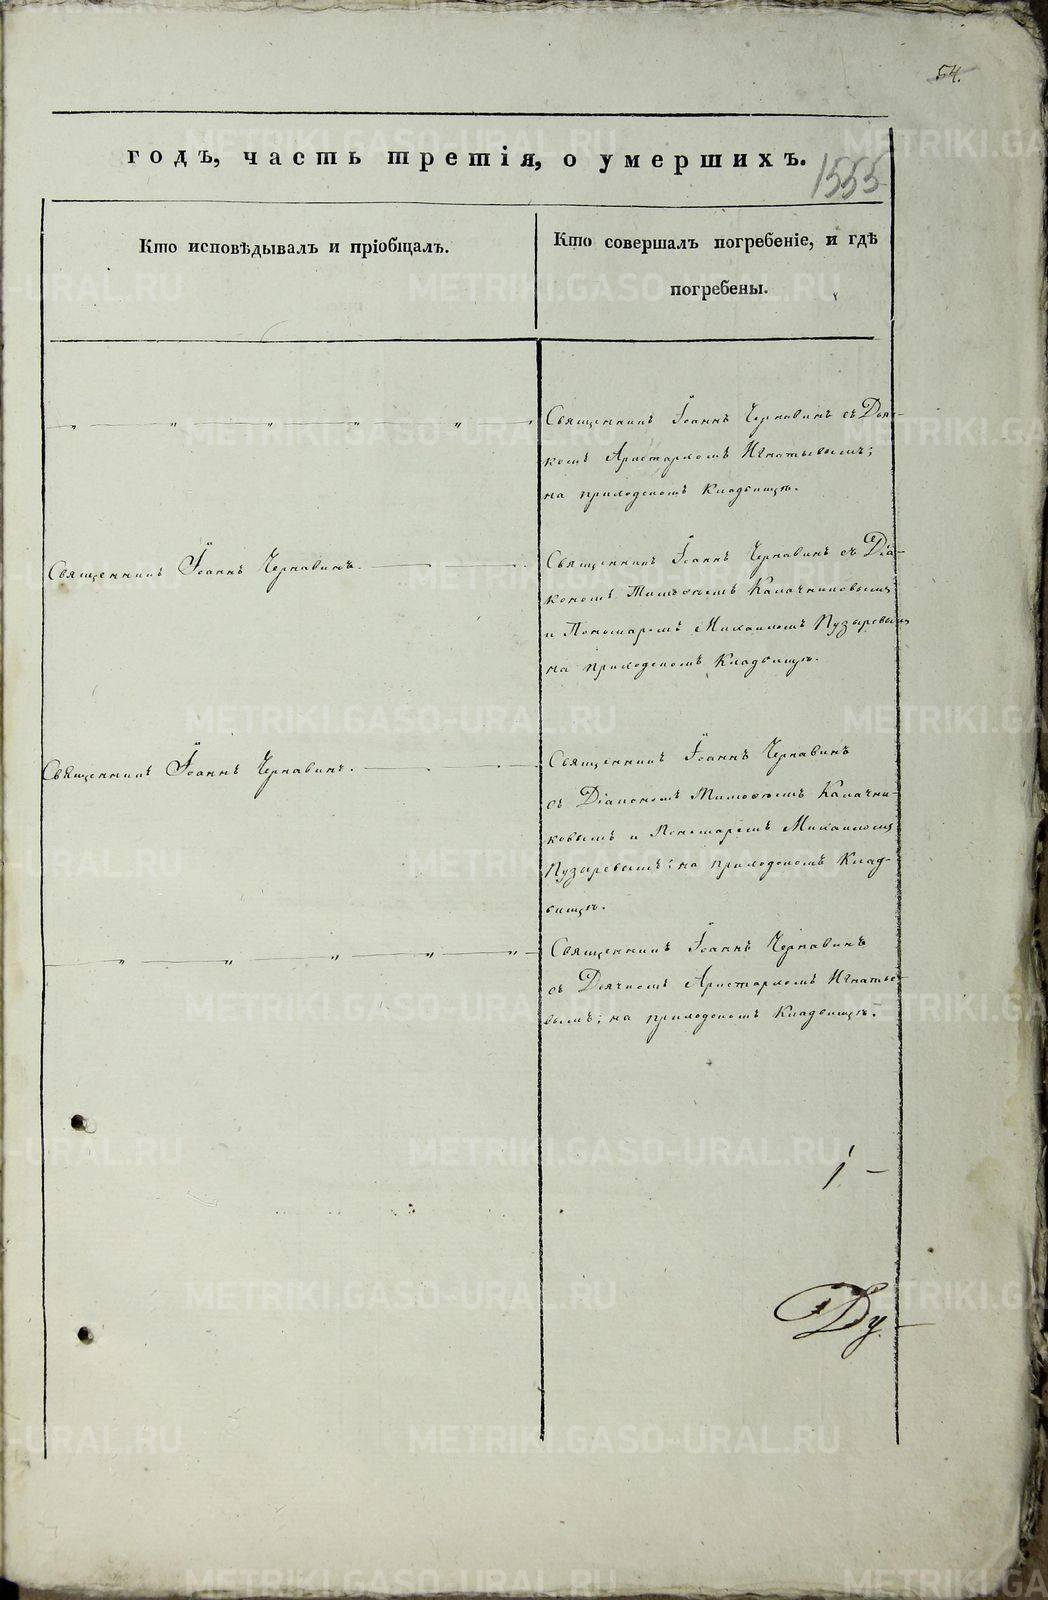 54.
годъ, часть третія, о умершихъ.
1555
Кто исповѣдывалъ и пріобщалъ.
Кто совершалъ погребеніе, и гдѣ
погребены.
Священникъ Іоаннъ Чернавинъ съ Дья-
комъ Аристархомъ Игнатьевымъ;
на приходскомъ Кладбищѣ.
Священникъ Іоаннъ Чернавинъ.
Священникъ Іоаннъ Чернавинъ съ Діа-
кономъ Тимофеемъ Калачниковымъ
и Пономаремъ Михаиломъ Пузыревымъ
на приходскомъ Кладбищѣ.
Священникъ Іоаннъ Чернавинъ.
Священникъ Іоаннъ Чернавинъ
съ Діакономъ Тимофеемъ Калачни-
ковымъ и Пономаремъ Михаиломъ
Пузыревымъ: на приходскомъ Клад-
бищѣ.
Священникъ Іоаннъ Чернавинъ
съ Дьячкомъ Аристархомъ Игнатье-
вымъ; на приходскомъ Кладбищѣ.
Ду-
METRIKI.GASO-URAL.RU